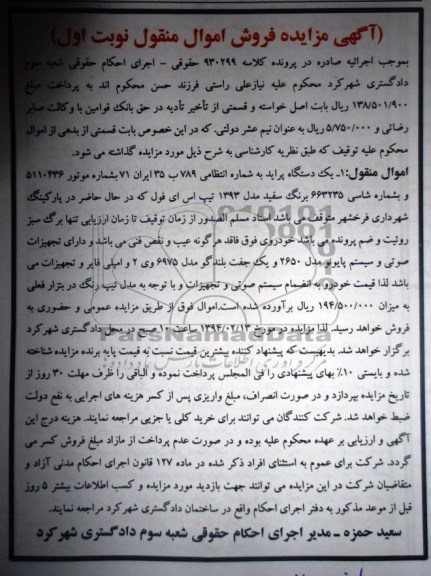 (آگهی مزایده فروش اموال منقول نوبت اول)
بموجب اجرائیه صادره در پرونده کلاسه ۹۳۰۲۹۹ حقوقی - اجرای احکام حقوقی شعبه سوم
دادگستری شهرکرد محکوم علیه نیازعلی راستی فرزند حسن محکوم اند به پرداخت مبلغ
۱۳۸/۵۰۱/۹۰۰ ریال بابت اصل خواسته و قسمتی از تأخیر تأدیه در حق بانک قوامین با وکالت صابر
رضائی و ۵/۷۵۰/۰۰۰ ریال به عنوان نیم عشر دولتی. که در این خصوص بابت قسمتی از بدهی از اموال
محکوم علیه توقیف که طبق نظریه کارشناسی به شرح ذیل مورد مزایده گذاشته می شود.
اموال منقول:۱- یک دستگاه پراید به شماره انتظامی ۷۸۹ ب ۳۵ ایران ۷۱ بشماره موتور ۵۱۱۰۴۳۶
و بشماره شاسی ۶۶۳۲۳۵ برنگ سفید مدل ۱۳۹۳ تیپ اس ای فول که در حال حاضر در پارکینگ
شهرداری فرخشهر متوقف می باشد اسناد مسلم الصدور از زمان توقیف تا زمان ارزیابی تنها برگ سبز
روئیت و ضم پرونده می باشد خودروی فوق فاقد هرگونه عیب و نقص فنی می باشد و دارای تجهیزات
صوتی و سیستم پایونر مدل ۲۶۵۰ و یک جفت بلندگو مدل ۶۹۷۵ وی ۲ و آمپلی فایر و تجهیزات می
باشد لذا قیمت خودرو به انضمام سیستم صوتی و تجهیزات و با توجه به مدل تیپ رنگ در بازار فعلی
به میزان ۱۹۴/۵۰۰/۰۰۰ ریال برآورده شده است.اموال فوق از طریق مزایده عمومی و حضوری به
فروش خواهد رسید. لذا مزایده در مورخ ۱۳۹۴/۰۲/۱۳ ساعت ۱۰ صبح در محل دادگستری شهرکرد
برگزار خواهد شد. بدیهیست که پیشنهاد کننده بیشترین قیمت نسبت به قیمت پایه برنده مزایده شناخته
شده و بایستی ۱۰٪ بهای پیشنهادی را فی المجلس پرداخت نموده و الباقی را ظرف مهلت ۳۰ روز از
تاریخ مزایده بپردازد و در صورت انصراف، مبلغ واریزی پس از کسر هزینه های اجرایی به نفع دولت
ضبط خواهد شد. شرکت کنندگان می توانند برای خرید کلی یا جزیی مراجعه نمایند. هزینه درج این
آگهی و ارزیابی بر عهده محکوم علیه بوده و در صورت عدم پرداخت از مازاد مبلغ فروش کسر می
گردد. شرکت برای عموم به استثنای افراد ذکر شده در ماده ۱۲۷ قانون اجرای احکام مدنی آزاد و
متقاضیان شرکت در این مزایده می توانند جهت بازدید مورد مزایده و کسب اطلاعات بیشتر ۵ روز
قبل از موعد مذکور به دفتر اجرای احکام واقع در ساختمان دادگستری شهرکرد مراجعه نمایند.
سعید حمزه - مدیر اجرای احکام حقوقی شعبه سوم دادگستری شهرکرد
ParsNamadData